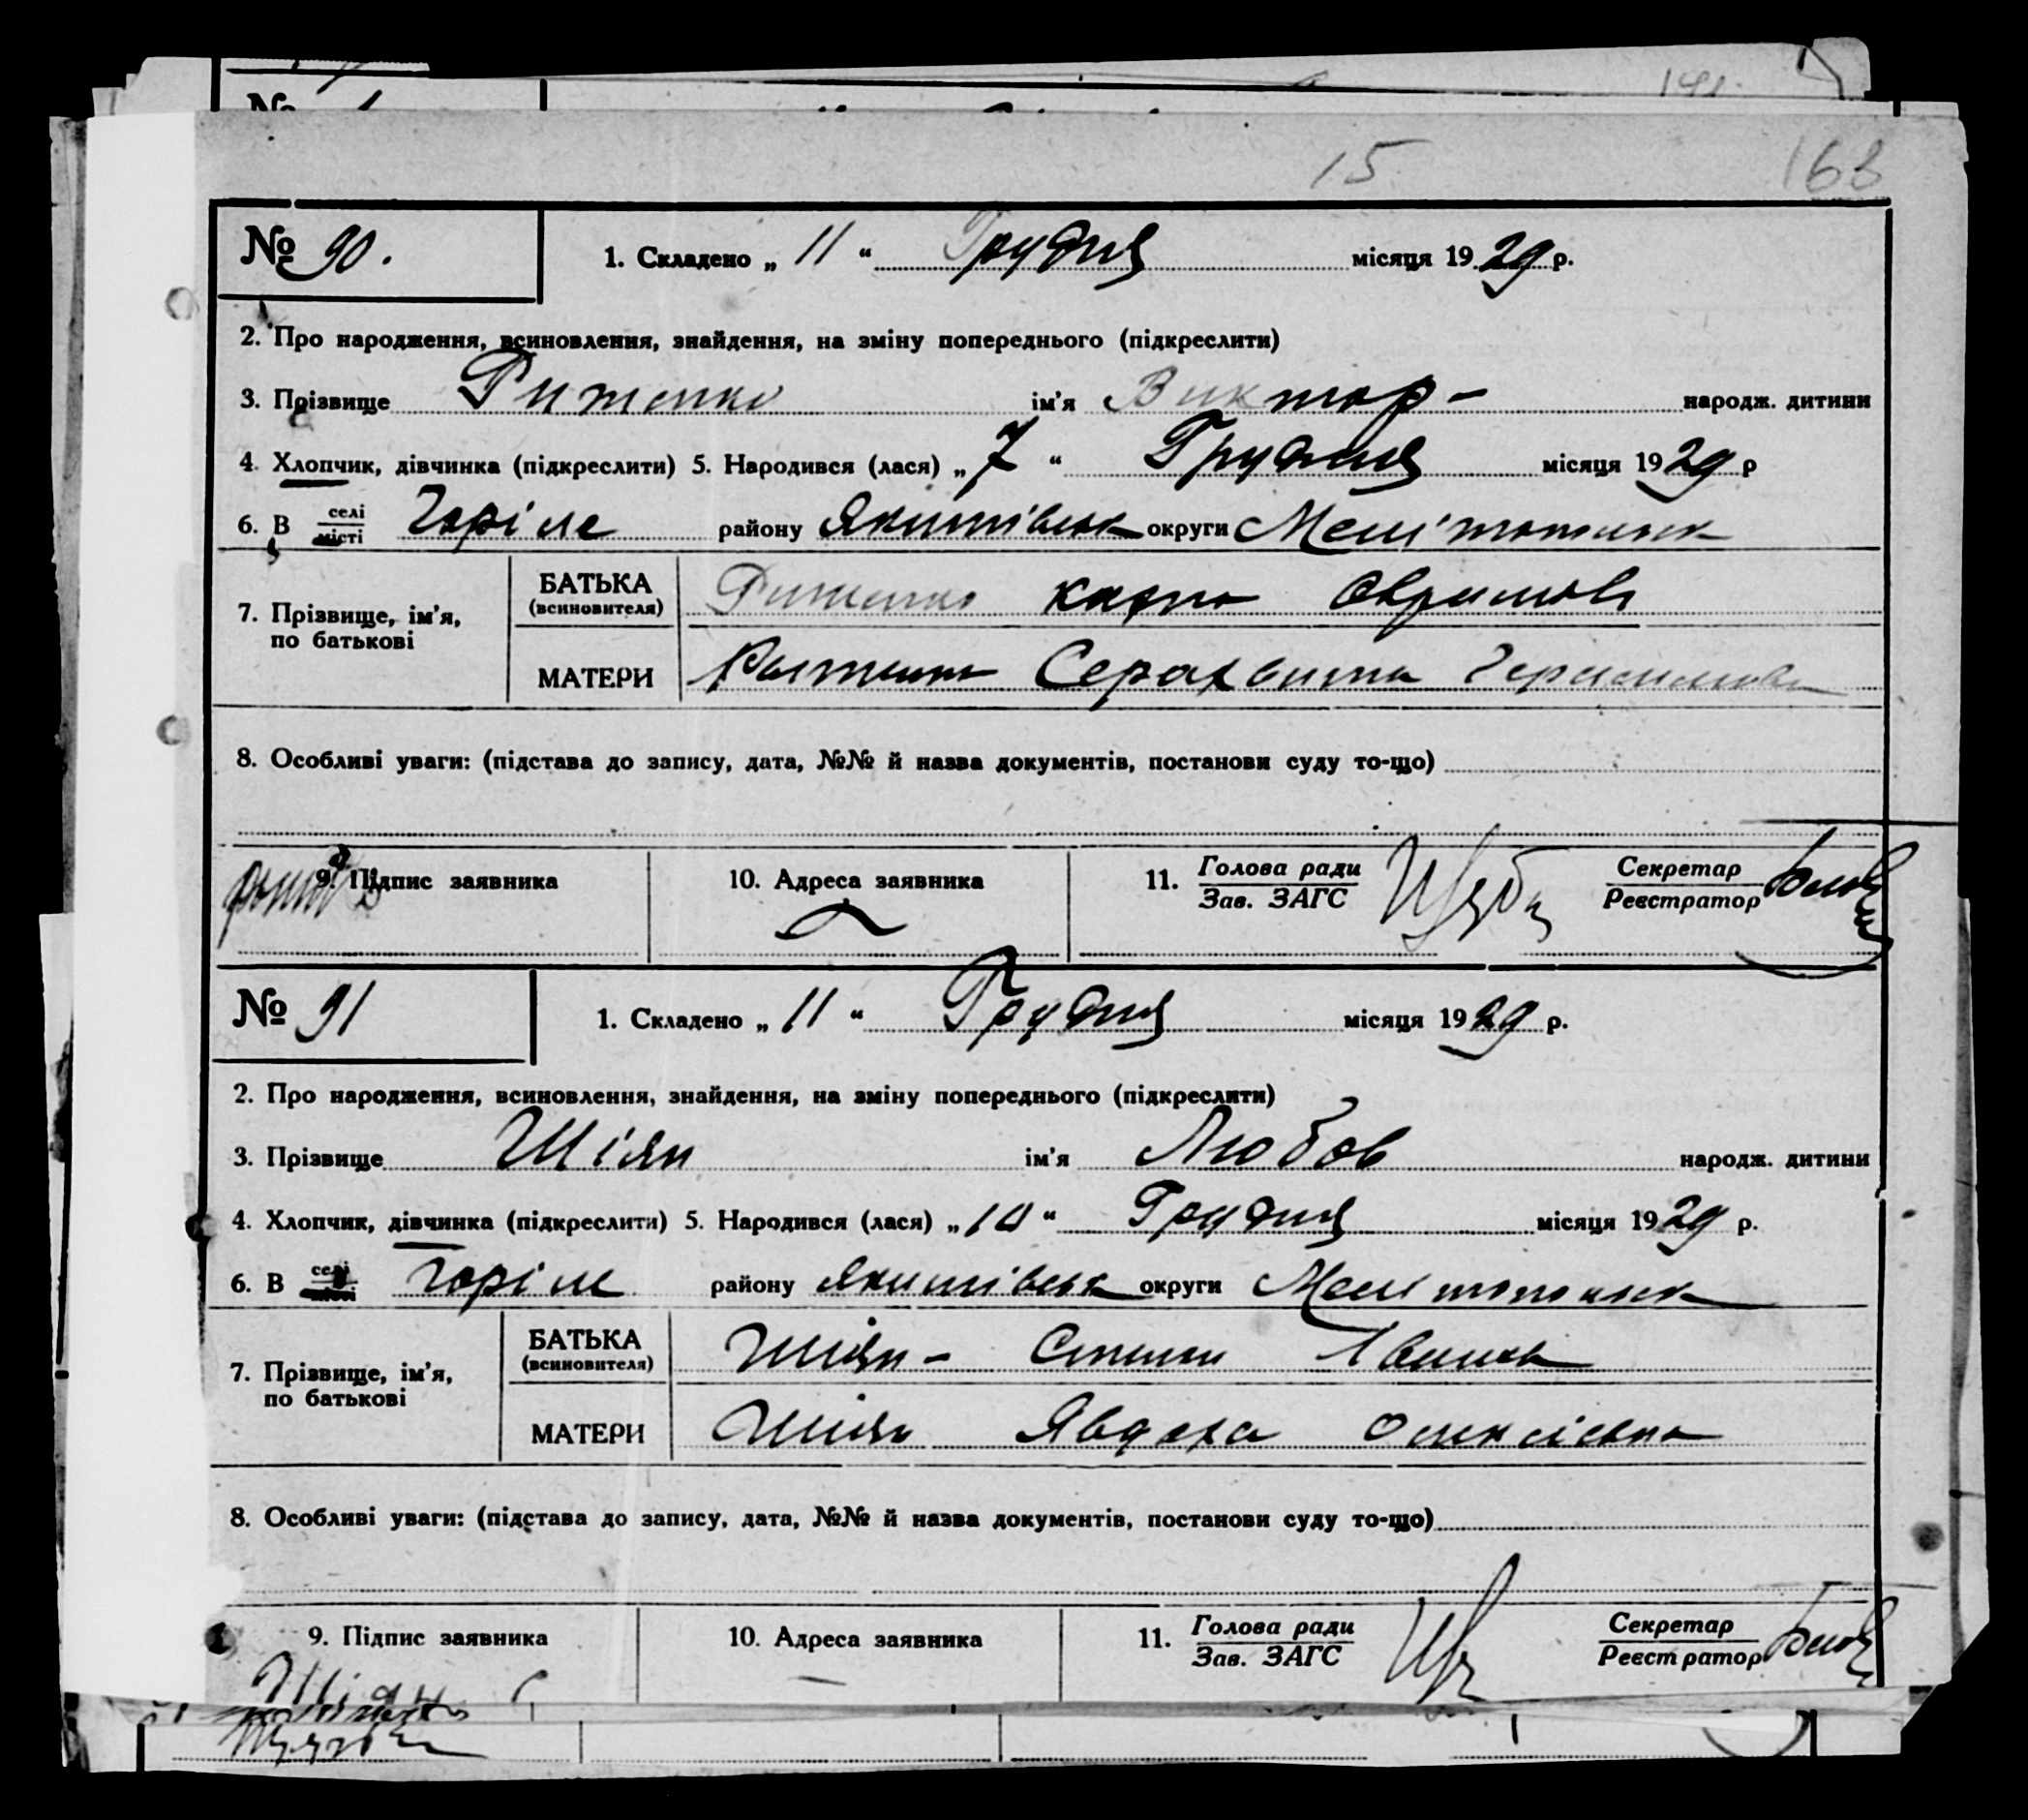 15
168
№ 90.
1. Складено „ 11 “ Грудня місяця 1929 р.
2. Про народження, всиновлення, знайдення, на зміну попереднього (підкреслити)
3. Прізвище ім'я Виктор - народж. дитини
4. Хлопчик, дівчинка (підкреслити) 5. Народився (лася) „ 7 “ Грудня місяця 1929 р
6. В селі місті Горіле району Якимівськ округи Мелітопольск
7. Прізвище, ім'я, по батькові
БАТЬКА (всиновителя) Карпо
МАТЕРИ Серахвима Герасимовна
8. Особливі уваги: (підстава до запису, дата, №№ й назва документів, постанови суду то-що)
9. Підпис заявника 10. Адреса заявника 11. Голова ради Зав. ЗАГС Секретар Реєстратор
№ 91
1. Складено „ 11 “ Грудня місяця 1929 р.
2. Про народження, всиновлення, знайдення, на зміну попереднього (підкреслити)
3. Прізвище Шіян ім'я Любов народж. дитини
4. Хлопчик, дівчинка (підкреслити) 5. Народився (лася) „ 10 “ Грудня місяця 1929 р.
6. В селі Горіле району Якимівськ округи Мелітопольск
7. Прізвище, ім'я, по батькові
БАТЬКА (всиновителя) Шіян -
МАТЕРИ Шіян Явдоха Олексієвна
8. Особливі уваги: (підстава до запису, дата, №№ й назва документів, постанови суду то-що)
9. Підпис заявника 10. Адреса заявника 11. Голова ради Зав. ЗАГС Секретар Реєстратор
Шіян